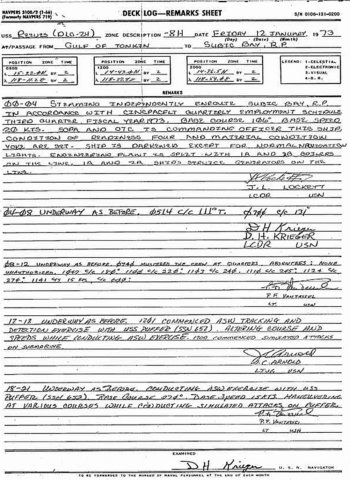 NAVPERS 3100/2 (1-66)
(Formerly NAVPERS 719)
DECK LOG—REMARKS SHEET
S/N 0106-131-0200
USS REEVES (DLG-24) ZONE DESCRIPTION -8H DATE FRIDAY 12 JANUARY 1973
(Day) (Date) (Month)
AT/PASSAGE FROM GULF OF TONKIN TO SUBIC BAY, R.P.
POSITION ZONE TIME POSITION ZONE TIME POSITION ZONE TIME
0800 1200 2000
BY 2 BY 2 BY 2
BY 2 BY 2 BY 2
LEGEND: 1-CELESTIAL
2-ELECTRONIC
3-VISUAL
4-D.R.
REMARKS
00-04 STEAMING INDEPENDENTLY ENROUTE SUBIC BAY, R.P.
IN ACCORDANCE WITH CINCPACFLT QUARTERLY EMPLOYMENT SCHEDULE
THIRD QUARTER FISCAL YEAR 1973. BASE COURSE 106°. BASE SPEED
20 KTS. SOPA AND OTC IS COMMANDING OFFICER THIS SHIP.
CONDITION OF READINESS FOUR AND MATERIAL CONDITION
YOKE ARE SET. SHIP IS DARKENED EXCEPT FOR NORMAL NAVIGATION
LIGHTS. ENGINEERING PLANT IS SPLIT WITH 1A AND 2B BOILERS
ON THE LINE. 1A AND 2A SHIPS SERVICE GENERATORS ON THE
LINE.
J. L. LOCKETT
LCDR USN
04-08 UNDERWAY AS BEFORE. 0514 C/C 111°T. C/C 121
D H Krieger
D. H. KRIEGER
LCDR USN
08-12 UNDERWAY AS BEFORE. MUSTERED THE CREW AT QUARTERS, ABSENTEES: NONE
UNAUTHORIZED.
P. F. VANTASSEL
LT USN
12-18 UNDERWAY AS BEFORE. 1201 COMMENCED ASW TRACKING AND
DETECTION EXERCISE WITH USS PUFFER (SSN 652). ALTERING COURSE AND
SPEEDS WHILE CONDUCTING ASW EXERCISE. COMMENCED SIMULATED ATTACKS
ON SUBMARINE.
D. C. ARNOLD
LTJG USN
18-21 UNDERWAY AS BEFORE. CONDUCTING ASW EXERCISE WITH USS
PUFFER (SSN 652). BASE COURSE 070°. BASE SPEED 15 KTS. MANEUVERING
AT VARIOUS COURSES WHILE CONDUCTING SIMULATED ATTACKS ON PUFFER.
P. F. VANTASSEL
LT USN
EXAMINED
D H Krieger U. S. N. NAVIGATOR
TO BE FORWARDED TO THE BUREAU OF NAVAL PERSONNEL AT THE END OF EACH MONTH